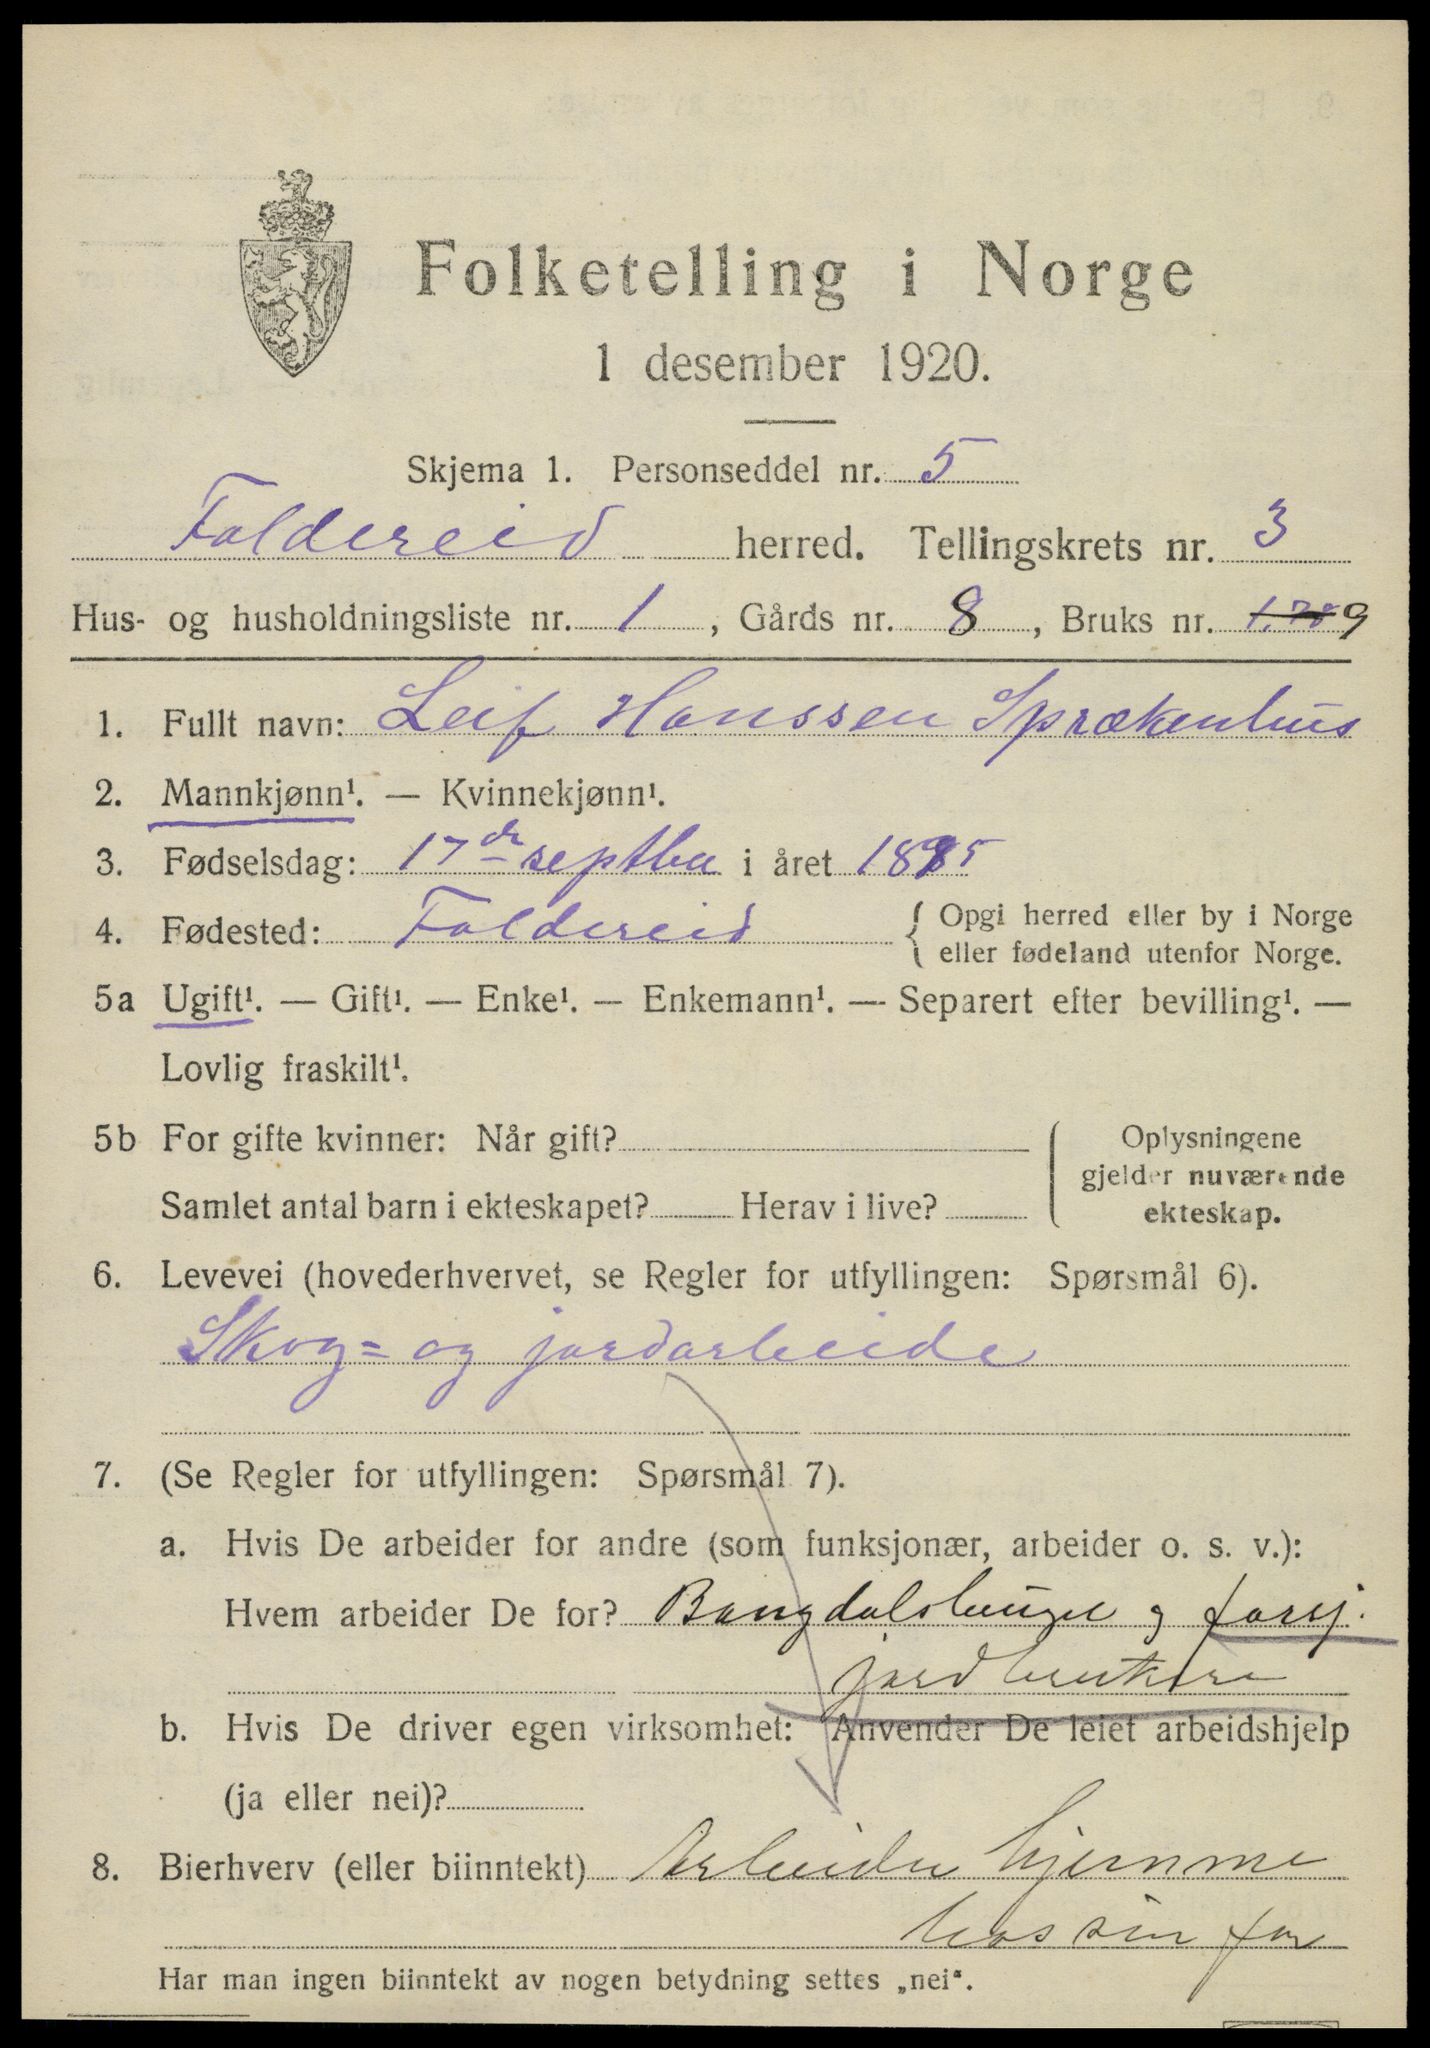 Folketelling i Norge
1 desember 1920.
Skjema 1. Personseddel nr. 5
Foldereid herred. Tellingskrets nr. 3
Hus- og husholdningsliste nr. 1, Gårds nr. 8, Bruks nr. 9
1. Fullt navn: Leif Hanssen Sprækenhus
2. Mannkjønn¹. — Kvinnekjønn¹.
3. Fødselsdag: 17de septbr i året 1895
4. Fødested: Foldereid { Opgi herred eller by i Norge
eller fødeland utenfor Norge.
5a Ugift¹. — Gift¹. — Enke¹. — Enkemann¹. — Separert efter bevilling¹. —
Lovlig fraskilt¹.
5b For gifte kvinner: Når gift?
Samlet antal barn i ekteskapet? Herav i live?
Oplysningene
gjelder nuværende
ekteskap.
6. Levevei (hovederhvervet, se Regler for utfyllingen: Spørsmål 6).
Skog= og jordarbeide
7. (Se Regler for utfyllingen: Spørsmål 7).
a. Hvis De arbeider for andre (som funksjonær, arbeider o. s. v.):
Hvem arbeider De for? og forsj.
jordbrukere
b. Hvis De driver egen virksomhet: Anvender De leiet arbeidshjelp
(ja eller nei)?
8. Bierhverv (eller biinntekt) Arbeider hjemme
hos sin far
Har man ingen biinntekt av nogen betydning settes „nei“.